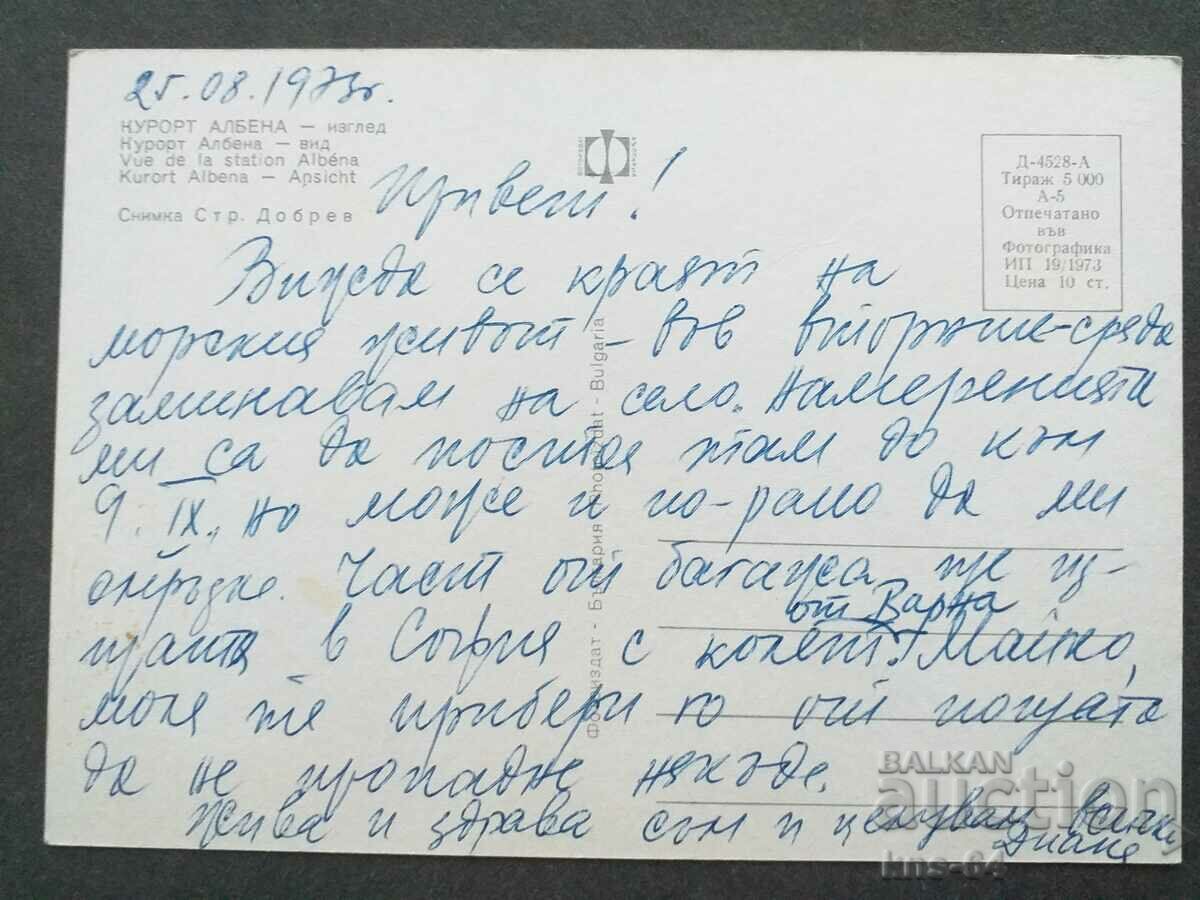 25.08.1973г.
КУРОРТ АЛБЕНА — изглед
Курорт Албена — вид
Vue de la station Albéna
Kurort Albena — Ansicht
Снимка Стр. Добрев
Д-4528-А
Тираж 5 000
А-5
Отпечатано
във
Фотографика
ИП 19/1973
Цена 10 ст.
Привет!
Вижда се краят на
морския живот – във вторник-сряда
заминавам на село. Намеренията
ми са да постоя там до към
9. IX., но може и по-рано да ми
омръзне. Част от багажа ще из-
пратя в София с колет от Варна. Майко,
моля те прибери го от пощата
да не пропадне някъде.
Жива и здрава съм и целувам всички
Диана
Фотоиздат - България Photoizdat - Bulgaria
BALKAN
auction
kns-64